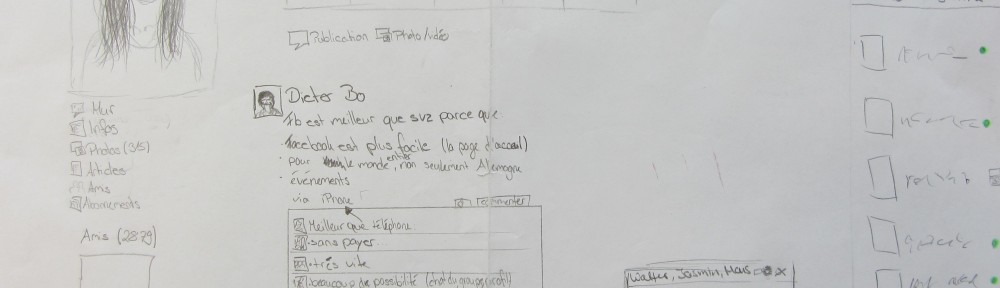 Publication Photo/vidéo
Mur
Infos
Photos (315)
Articles
Amis
Abonnements
Amis (2879)
Dieter Bo
Fb est meilleur que svz parce que
· facebook est plus facile (la page d'acceuil)
· pour le monde entier, non seulement Allemagne
· événements
via iPhone
Commenter
Meilleur que téléphone
· sans payer
· très vite
beaucoup de possibilité (chat du groupe,
Walter, Jasmin,